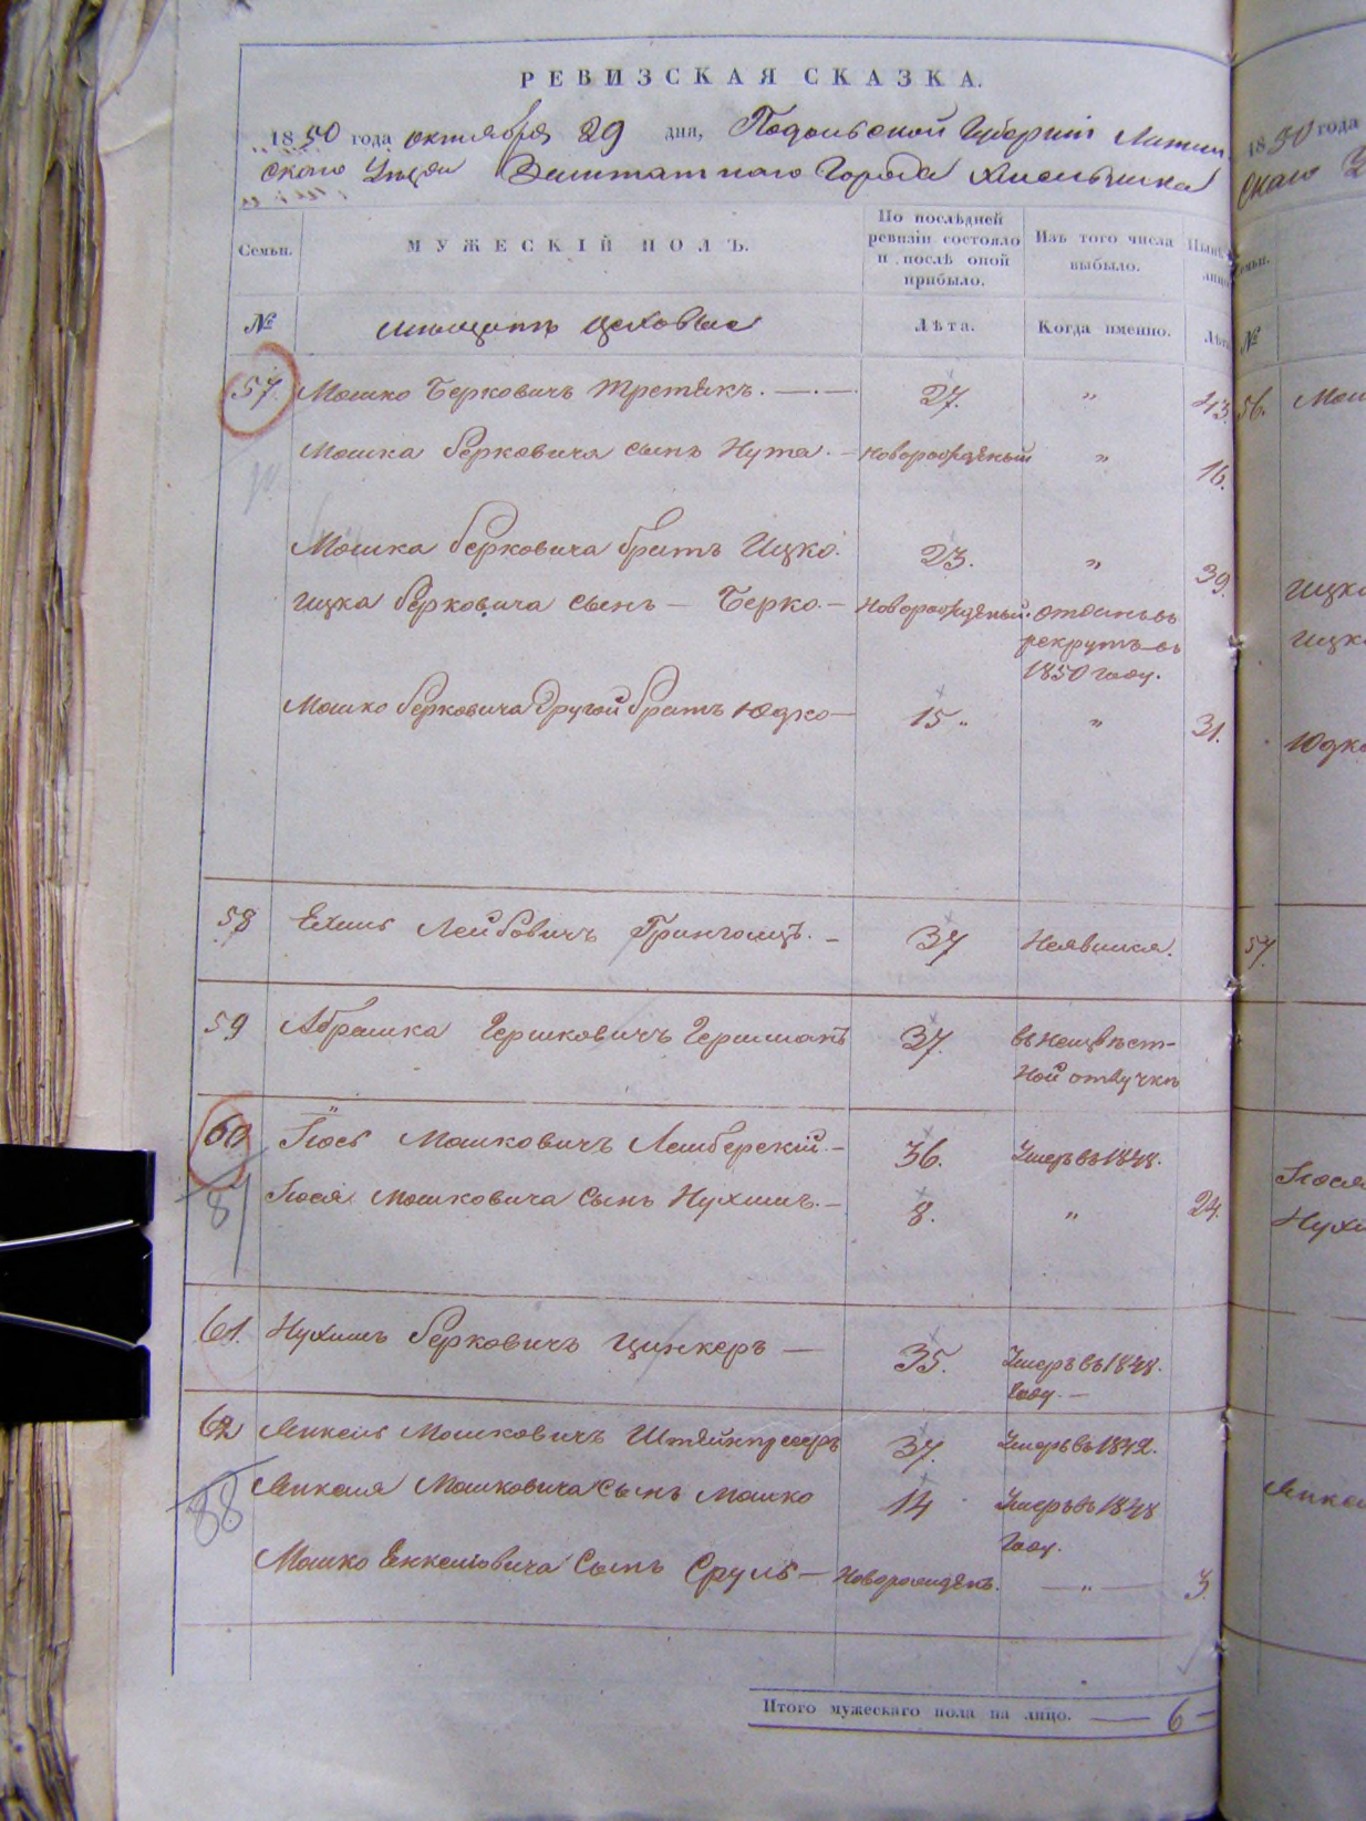 РЕВИЗСКАЯ СКАЗКА.
1850 года октября 29 дня, Подольской Губернiи Летич-
скаго Уѣзда Заштатнаго Города Хмельника
Семьи. МУЖЕСКIЙ ПОЛЪ. По послѣдней ревизiи состояло и послѣ оной прибыло. Изъ того числа выбыло. Нынѣ лицо
№ мещанъ цеховые Лѣта. Когда именно. Лѣта
57. Мошко Берковичъ Третякъ. 27. " 43.
Мошка Берковича сынъ Нута. Новорожденый " 16.
Мошка Берковича братъ Ицко. 23. " 39.
Ицка Берковича сынъ — Берко. — Новорожденый. отданъ въ
рекрутъ въ
1850 году.
Мошко Берковича Другой братъ Юдко — 15 " 31.
58 Ехиль Лейбовичъ — 37 Неявился.
59 Абрашка Гершковичъ Гершманъ 37. въ неизвѣст-
ной отлучкѣ
60 Iось Мошковичъ Лемберскiй. — 36. Умеръ въ 1848.
81
Iося Мошковича сынъ Нухимъ. — 8. " 24.
61. Нухимъ Берковичъ Цинкеръ — 35. Умеръ въ 1848.
году. —
62 Янкель Мошковичъ 37. Умеръ въ 1842.
88
Янкеля Мошковича сынъ Мошко 14 Умеръ въ 1848
году.
Мошко Енкелювича Сынъ Сруль — Новорожденъ. — " — 3.
Итого мужескаго пола на лицо. — 6 —
1850 года
скаго У
Семьи.
№
56. Мош
Ицка
Ицка
Юдка
57.
Iося
Нухи
Янкел